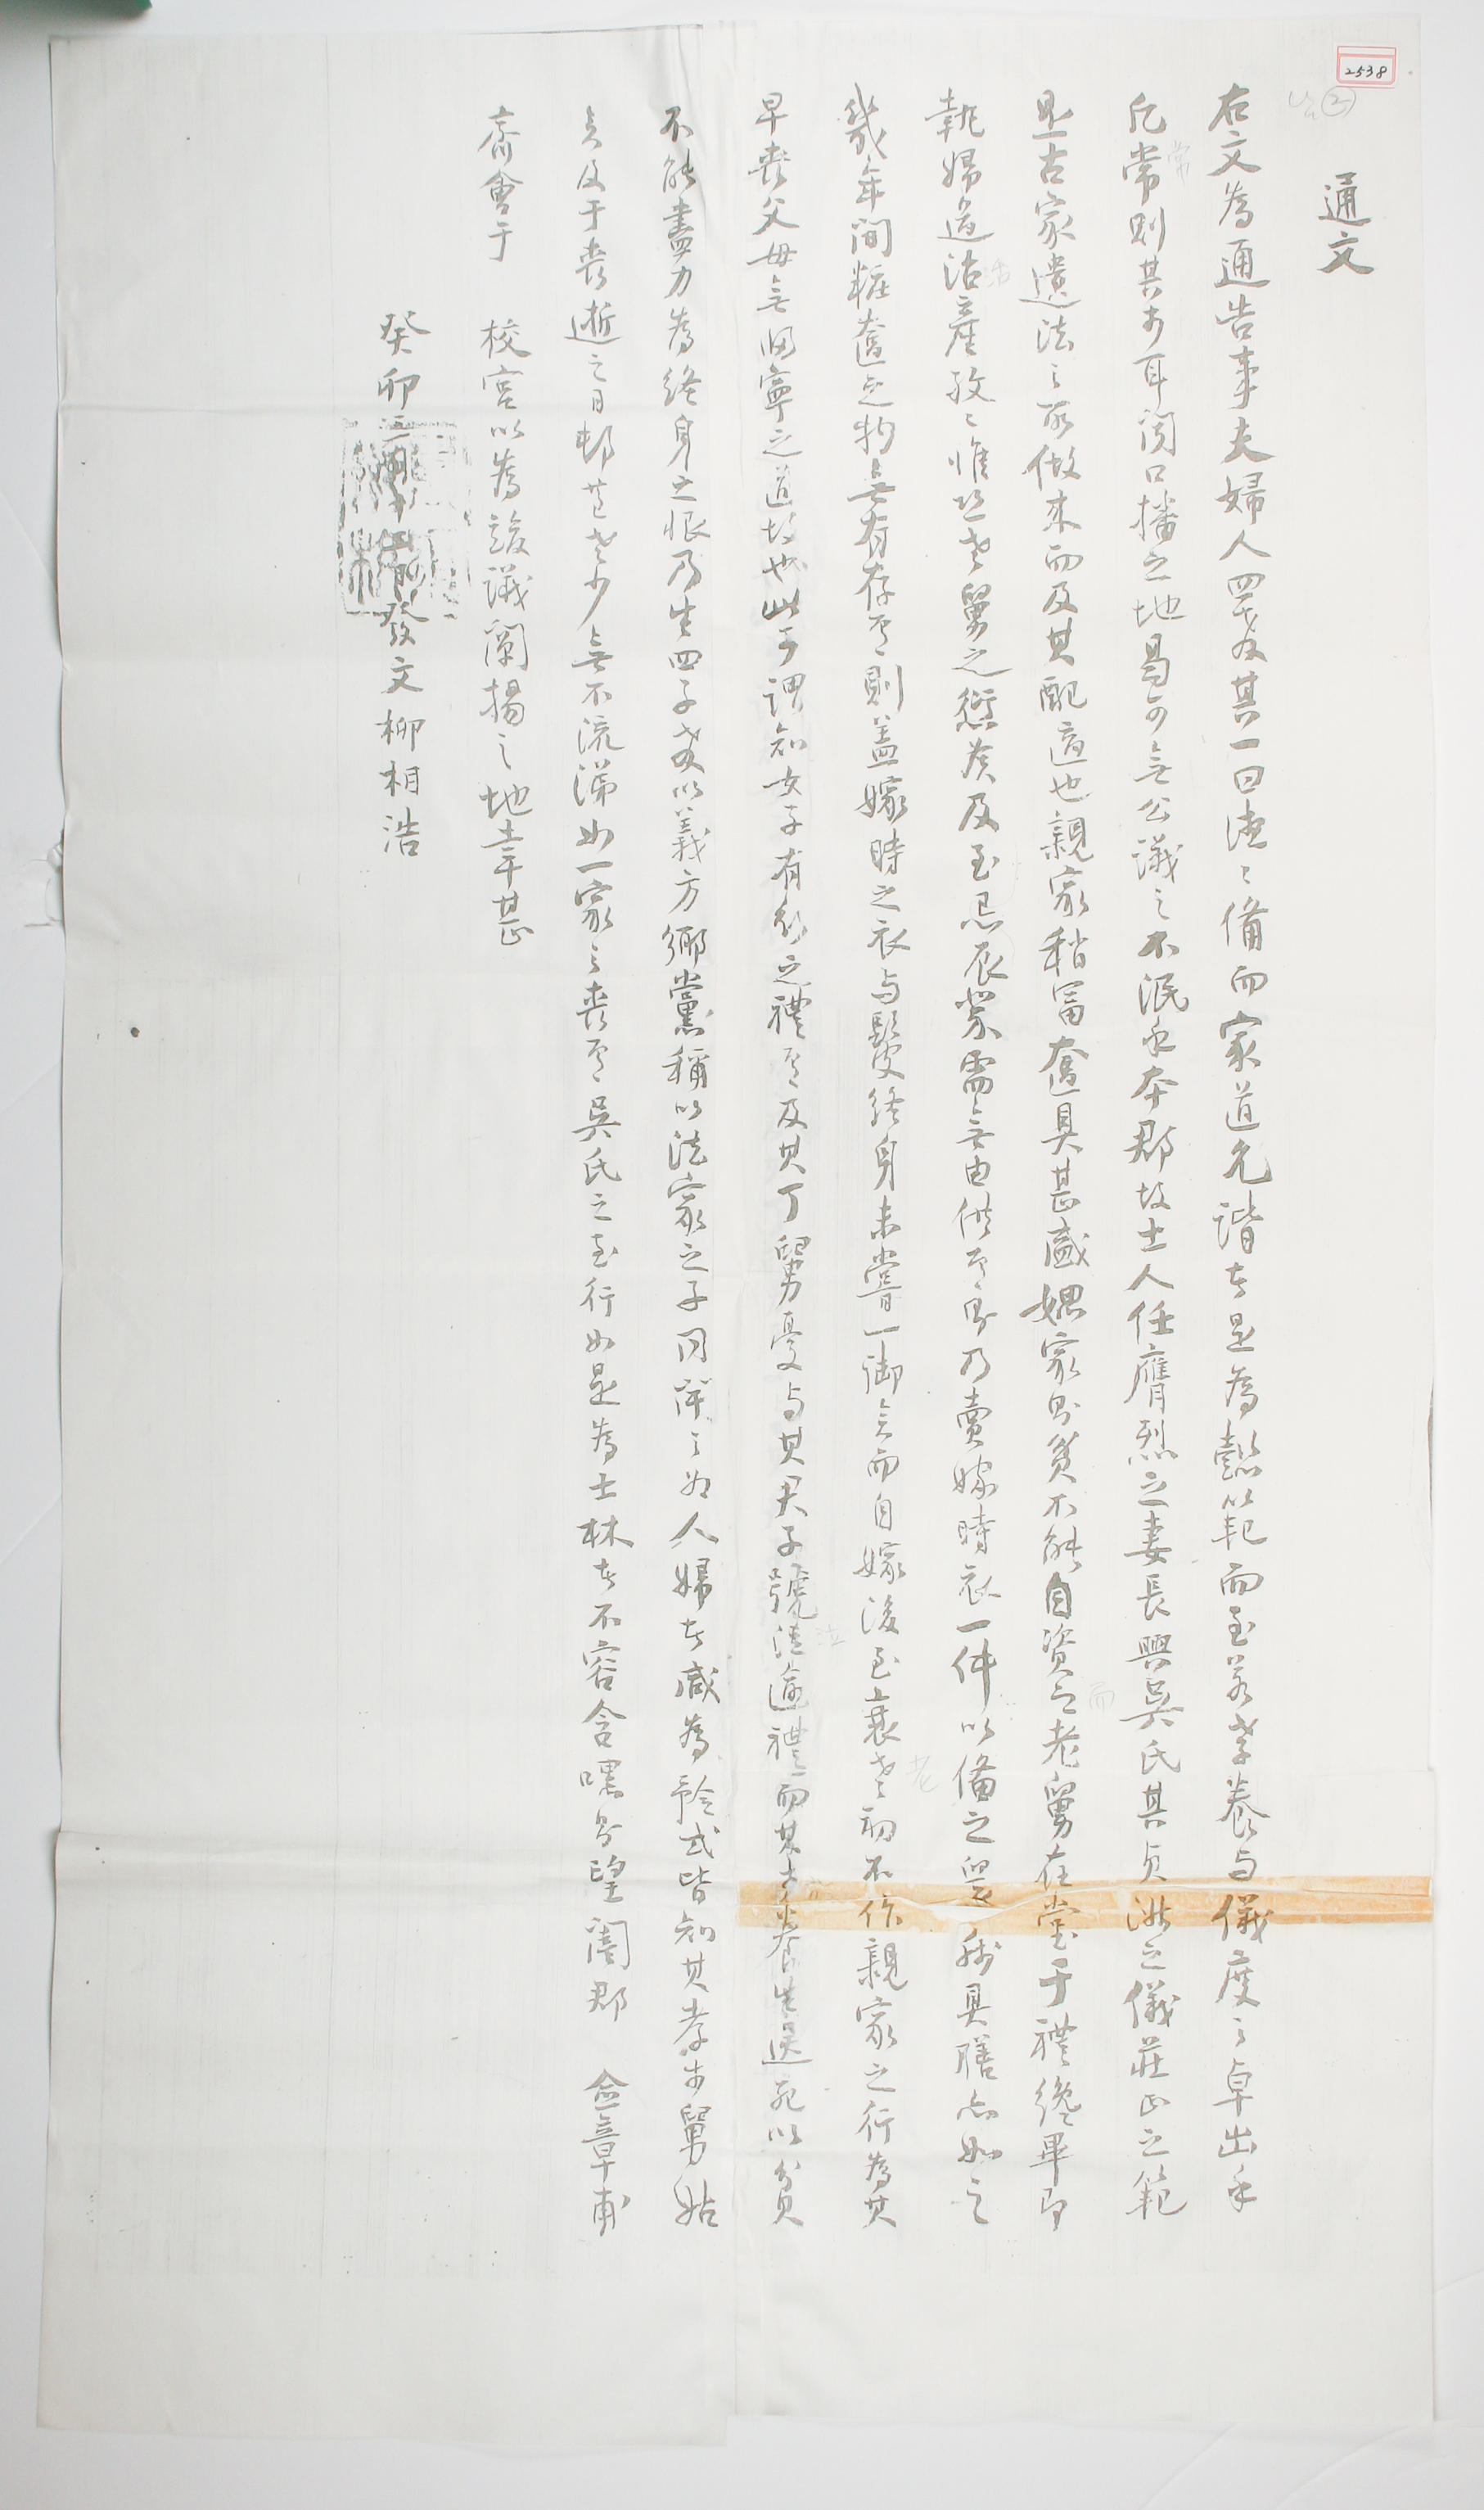 2538
②
通文
右文爲通告事夫婦人四德及其一曰德德備而家道允諧者是爲懿範而至若孝養与儀度之卓出乎
凡常則其於耳聞口播之地曷可無公議之不泯乎本郡故士人任膺烈之妻長興吳氏其貞淑之儀莊正之範
是古家遺法之所做來而及其配適也親家稍富奩具甚盛媤家則貧不能自資而老舅在堂于禮纔畢即
執婦道治産孜孜惟恐老舅之愆矣及至忌辰祭需無由供焉則乃賣嫁時衣一件以備之舅 具膳亦如之
幾年間粧奩之物無有存焉則盖嫁時之衣与髮終身未嘗一御矣而自嫁後至衰老初不作親家之行爲其
早喪父母無歸寧之道故也此可謂知女子有行之禮焉及其丁舅憂与其君子號泣逾禮而其 養生送死以貧
不能盡力爲終身之恨乃生四子敎以義方鄉黨稱以法家之子同閈之爲人婦者咸爲矜式皆知其孝於舅姑
矣及于喪逝之日邨芭老少無不流涕如一家之喪焉吳氏之至行如是爲士林者不容含嘿 望闔郡 僉章甫
齊會于 校宮以爲竣議闡揚之地幸甚
癸卯三月 日 發文柳相浩